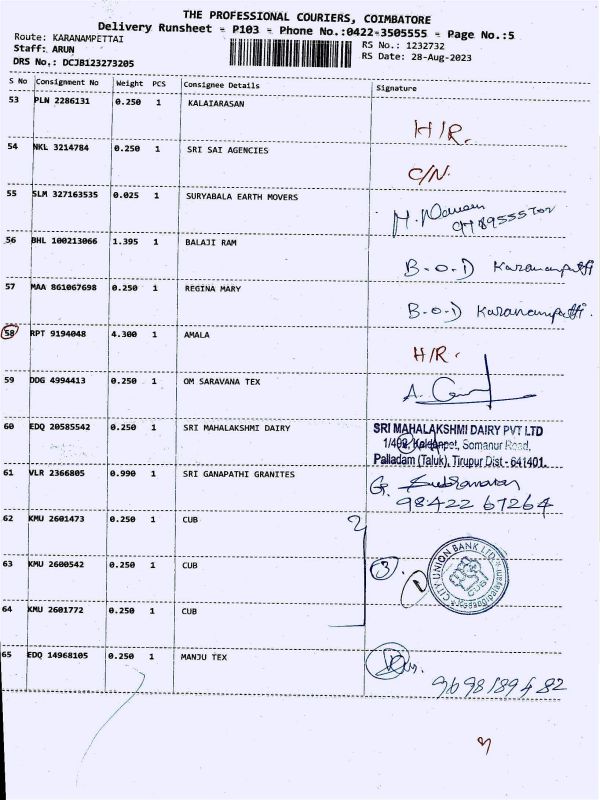 THE PROFESSIONAL COURIERS, COIMBATORE
Delivery Runsheet - P103 - Phone No.:0422-3505555 - Page No.:5
Route: KARANAMPETTAI
RS No.: 1232732
Staff: ARUN
RS Date: 28-Aug-2023
DRS No.: DCJB123273205
S No Consignment No Weight PCS Consignee Details Signature
53 PLN 2286131 0.250 1 KALAIARASAN
H/R.
54 NKL 3214784 0.250 1 SRI SAI AGENCIES
C/N.
55 SLM 327163535 0.025 1 SURYABALA EARTH MOVERS
56 BHL 100213066 1.395 1 BALAJI RAM
B.O.D Karanampatti
57 MAA 861067698 0.250 1 REGINA MARY
B.O.D Karanampatti.
58 RPT 9194048 4.300 1 AMALA
H/R.
59 DDG 4994413 0.250 1 OM SARAVANA TEX
60 EDQ 20585542 0.250 1 SRI MAHALAKSHMI DAIRY
SRI MAHALAKSHMI DAIRY PVT LTD
Somanur Road,
Palladam (Taluk), Tirupur Dist - 641401.
61 VLR 2366805 0.990 1 SRI GANAPATHI GRANITES
98422 67264
62 KMU 2601473 0.250 1 CUB
63 KMU 2600542 0.250 1 CUB
3
CITY UNION BANK LTD
CUB
64 KMU 2601772 0.250 1 CUB
65 EDQ 14968105 0.250 1 MANJU TEX
9698189482